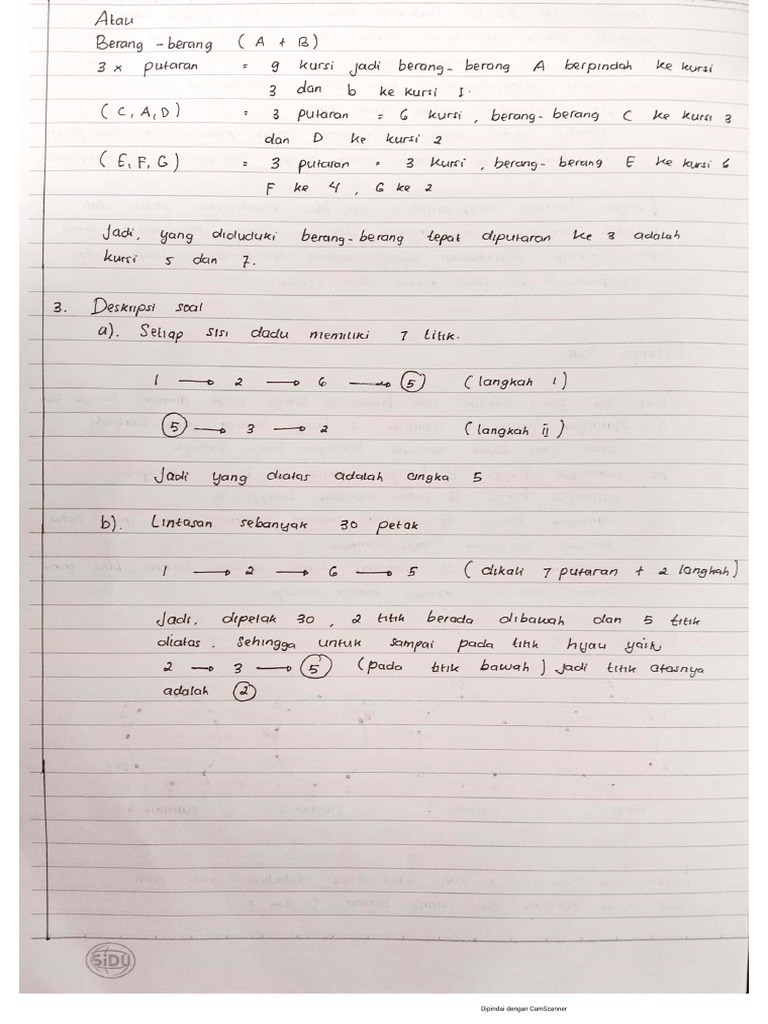 Atau
Berang - berang ( A + B )
3 x putaran = 9 kursi jadi berang - berang A berpindah ke kursi
3 dan b ke kursi 1.
( C, A, D ) = 3 putaran = 6 kursi , berang - berang C ke kursi 3
dan D ke kursi 2
( E, F, G ) = 3 putaran = 3 kursi , berang - berang E ke kursi 6
F ke 4 , G ke 2
Jadi, yang diduduki berang - berang tepat diputaran ke 3 adalah
kursi 5 dan 7.
3. Deskripsi soal
a). Setiap sisi dadu memiliki 7 titik.
1 → 2 → 6 → 5 ( langkah i )
5 → 3 → 2 ( langkah ii )
Jadi yang diatas adalah angka 5
b). Lintasan sebanyak 30 petak
1 → 2 → 6 → 5 ( dikali 7 putaran + 2 langkah )
Jadi, dipetak 30 , 2 titik berada dibawah dan 5 titik
diatas . Sehingga untuk sampai pada titik hijau yaitu
2 → 3 → 5 ( pada titik bawah ) Jadi titik atasnya
adalah 2
SiDU
Dipindai dengan CamScanner